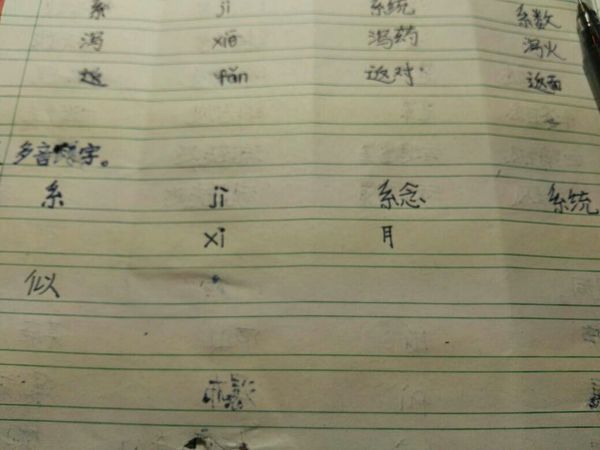 系 jì 系统 系数
泻 xiè 泻药 泻火
返 fǎn 返对 返面
多音字。
系 jì 系念 系统
xì 月
似